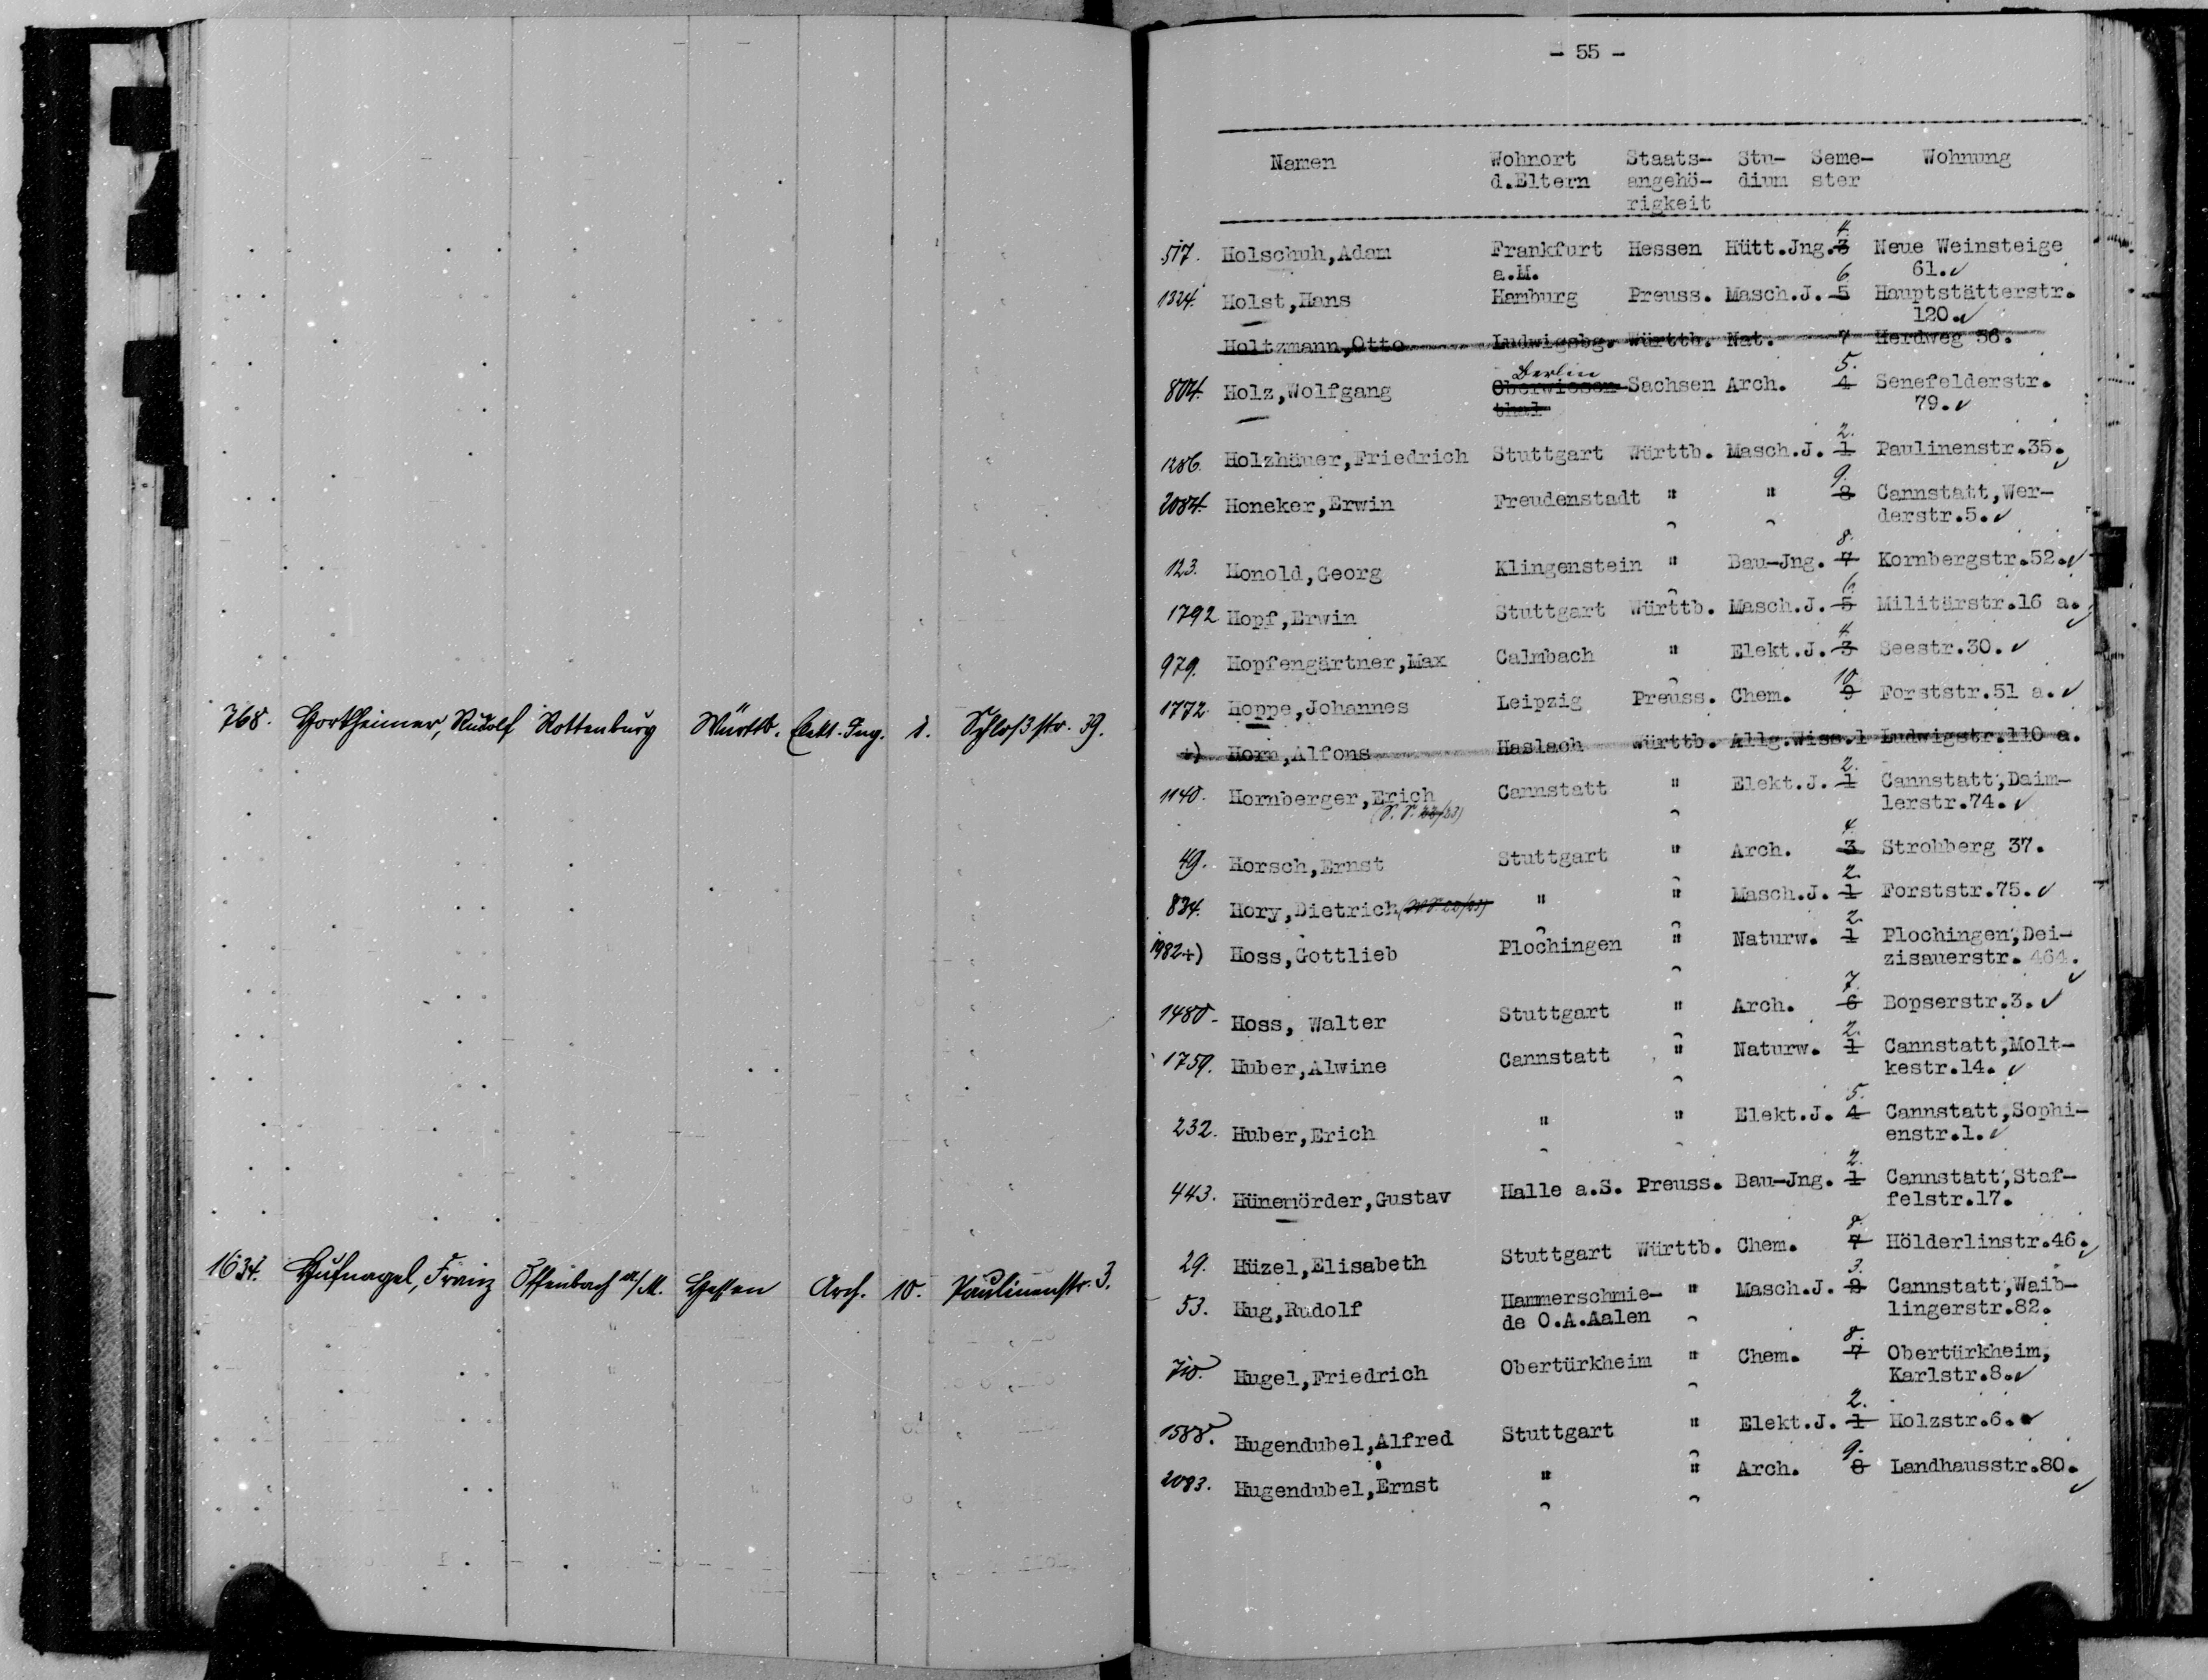 768. Horkheimer, Rudolf Rottenburg Württb. Elekt.-Ing. 1. Schloßstr. 39.
1634. Hufnagel, Franz Offenbach a/M. Hessen Arch. 10. Paulinenstr. 3.
- 55 -
Namen Wohnort Staats- Stu- Seme- Wohnung
d.Eltern angehö- dium ster
rigkeit
517. Holschuh,Adam Frankfurt Hessen Hütt.Jng. 3 4. Neue Weinsteige
a.M. 61.
1324. Holst,Hans Hamburg Preuss. Masch.J. 5 6 Hauptstätterstr.
120.
Holtzmann,Otto Ludwigsbg. Württb. Nat. 7 Herdweg 36.
Berlin
804. Holz,Wolfgang Oberwiesen- Sachsen Arch. 4 5. Senefelderstr.
thal 79.
1286. Holzhäuer,Friedrich Stuttgart Württb. Masch.J. 1 2. Paulinenstr.35.
2084. Honeker,Erwin Freudenstadt " " 8 9. Cannstatt,Wer-
derstr.5.
123. Honold,Georg Klingenstein " Bau-Jng. 7 8. Kornbergstr.52.
1792 Hopf,Erwin Stuttgart Württb. Masch.J. 5 6. Militärstr.16 a.
979. Hopfengärtner,Max Calmbach " Elekt.J. 3 4. Seestr.30.
1772. Hoppe,Johannes Leipzig Preuss. Chem. 9 10 Forststr.51 a.
+) Horn,Alfons Haslach Württb. Allg.Wiss.1 Ludwigstr.110 a.
1140. Hornberger,Erich Cannstatt " Elekt.J. 1 2. Cannstatt,Daim-
lerstr.74.
49. Horsch,Ernst Stuttgart " Arch. 3 4. Strohberg 37.
834. Hory,Dietrich " " Masch.J. 1 2. Forststr.75.
1982 +) Hoss,Gottlieb Plochingen " Naturw. 1 2. Plochingen,Dei-
zisauerstr. 464.
1480. Hoss, Walter Stuttgart " Arch. 6 7. Bopserstr.3.
1759. Huber,Alwine Cannstatt " Naturw. 1 2. Cannstatt,Molt-
kestr.14.
232. Huber,Erich " " Elekt.J. 4 5. Cannstatt,Sophi-
enstr.1.
443. Hünemörder,Gustav Halle a.S. Preuss. Bau-Jng. 1 2. Cannstatt,Staf-
felstr.17.
29. Hüzel,Elisabeth Stuttgart Württb. Chem. 7 8. Hölderlinstr.46.
53. Hug,Rudolf Hammerschmie- " Masch.J. 3. Cannstatt,Waib-
de O.A.Aalen lingerstr.82.
710. Hugel,Friedrich Obertürkheim " Chem. 7 8. Obertürkheim,
Karlstr.8.
1588. Hugendubel,Alfred Stuttgart " Elekt.J. 1 2. Holzstr.6.
2083. Hugendubel,Ernst " " Arch. 8 9. Landhausstr.80.